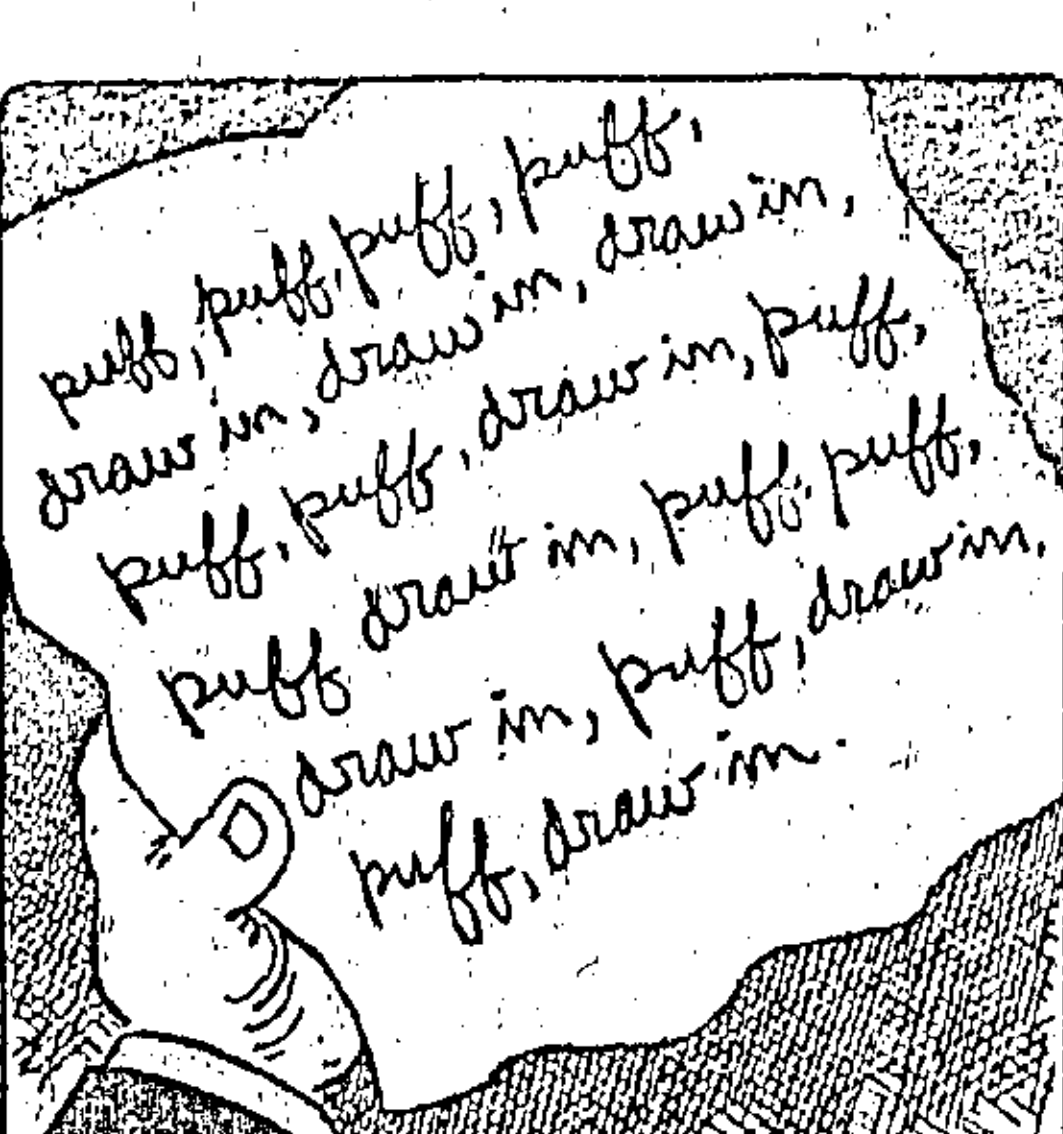 puff, puff, puff, puff,
draw in, draw in, draw in,
puff, puff, draw in, puff,
puff draw in, puff, puff,
draw in, puff, draw in,
puff, draw in.